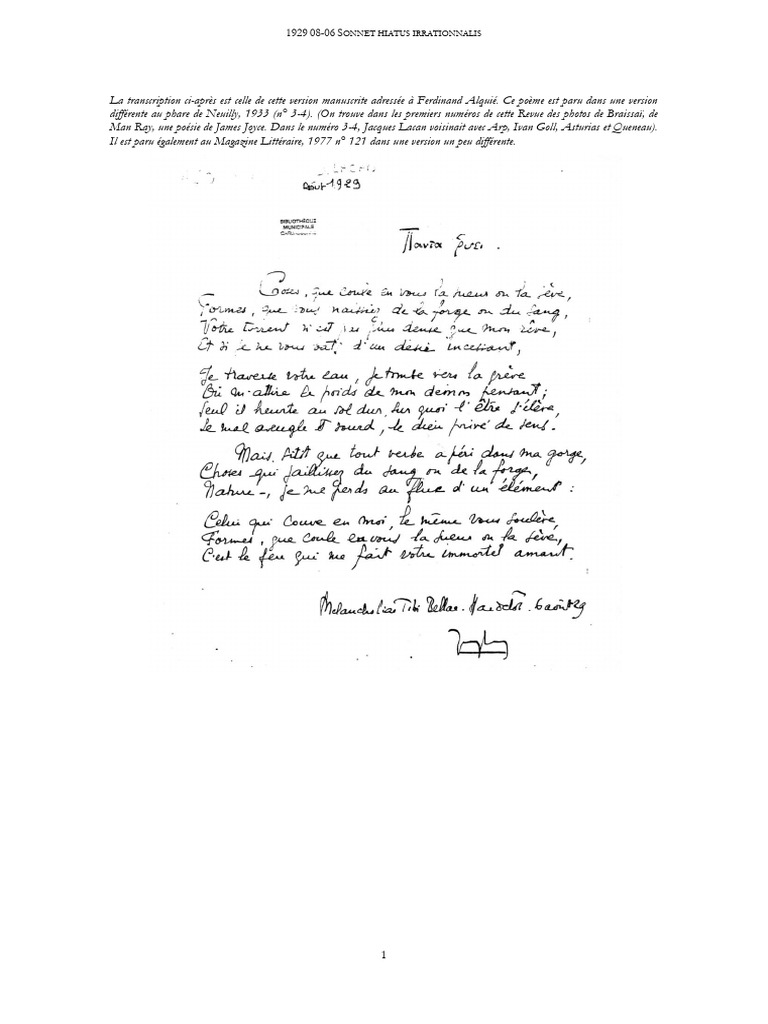 1929 08-06 SONNET HIATUS IRRATIONNALIS
La transcription ci-après est celle de cette version manuscrite adressée à Ferdinand Alquié. Ce poème est paru dans une version
différente au phare de Neuilly, 1933 (n° 3-4). (On trouve dans les premiers numéros de cette Revue des photos de Braissaï, de
Man Ray, une poésie de James Joyce. Dans le numéro 3-4, Jacques Lacan voisinait avec Arp, Ivan Goll, Asturias et Queneau).
Il est paru également au Magazine Littéraire, 1977 n° 121 dans une version un peu différente.
Août 1929
BIBLIOTHÈQUE
MUNICIPALE
Παντα ῥει.
Choses, que coule en vous la sueur ou la sève,
Formes, que vous naissiez de la forge ou du sang,
Votre torrent n'est pas plus dense que mon rêve,
Et si je ne vous bats d'un désir incessant,
Je traverse votre eau, je tombe vers la grève
Où m'attire le poids de mon démon pensant;
Seul il heurte au sol dur sur quoi l'être s'élève,
Le mal aveugle et sourd, le dieu privé de sens.
Mais, sitôt que tout verbe a péri dans ma gorge,
Choses qui jaillissez du sang ou de la forge,
Nature –, je me perds au flux d'un élément :
Celui qui couve en moi, le même vous soulève,
Formes, que coule en vous la sueur ou la sève,
C'est le feu qui me fait votre immortel amant.
Melancholiae Tibi Bellae. 6 août 29
1